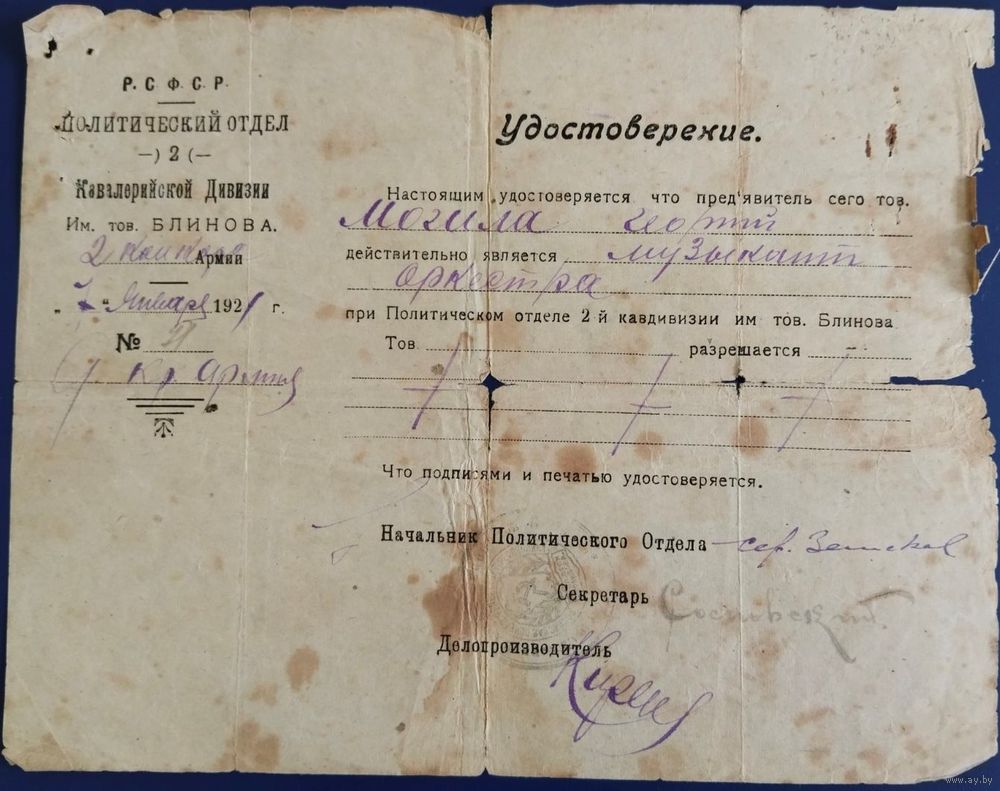 Р. С. Ф. С. Р.
ПОЛИТИЧЕСКИЙ ОТДЕЛ
—) 2 (—
Кавалерийской Дивизии
Им. тов. БЛИНОВА.
2 Армии
„7“ Января 1921 г.
№
Удостоверение.
Настоящим удостоверяется что пред'явитель сего тов.
Могила Георгий
действительно является музыкант
оркестра
при Политическом отделе 2-й кавдивизии им тов. Блинова
Тов. разрешается
Что подписями и печатью удостоверяется.
Начальник Политического Отдела
Секретарь
Делопроизводитель
www.ay.by